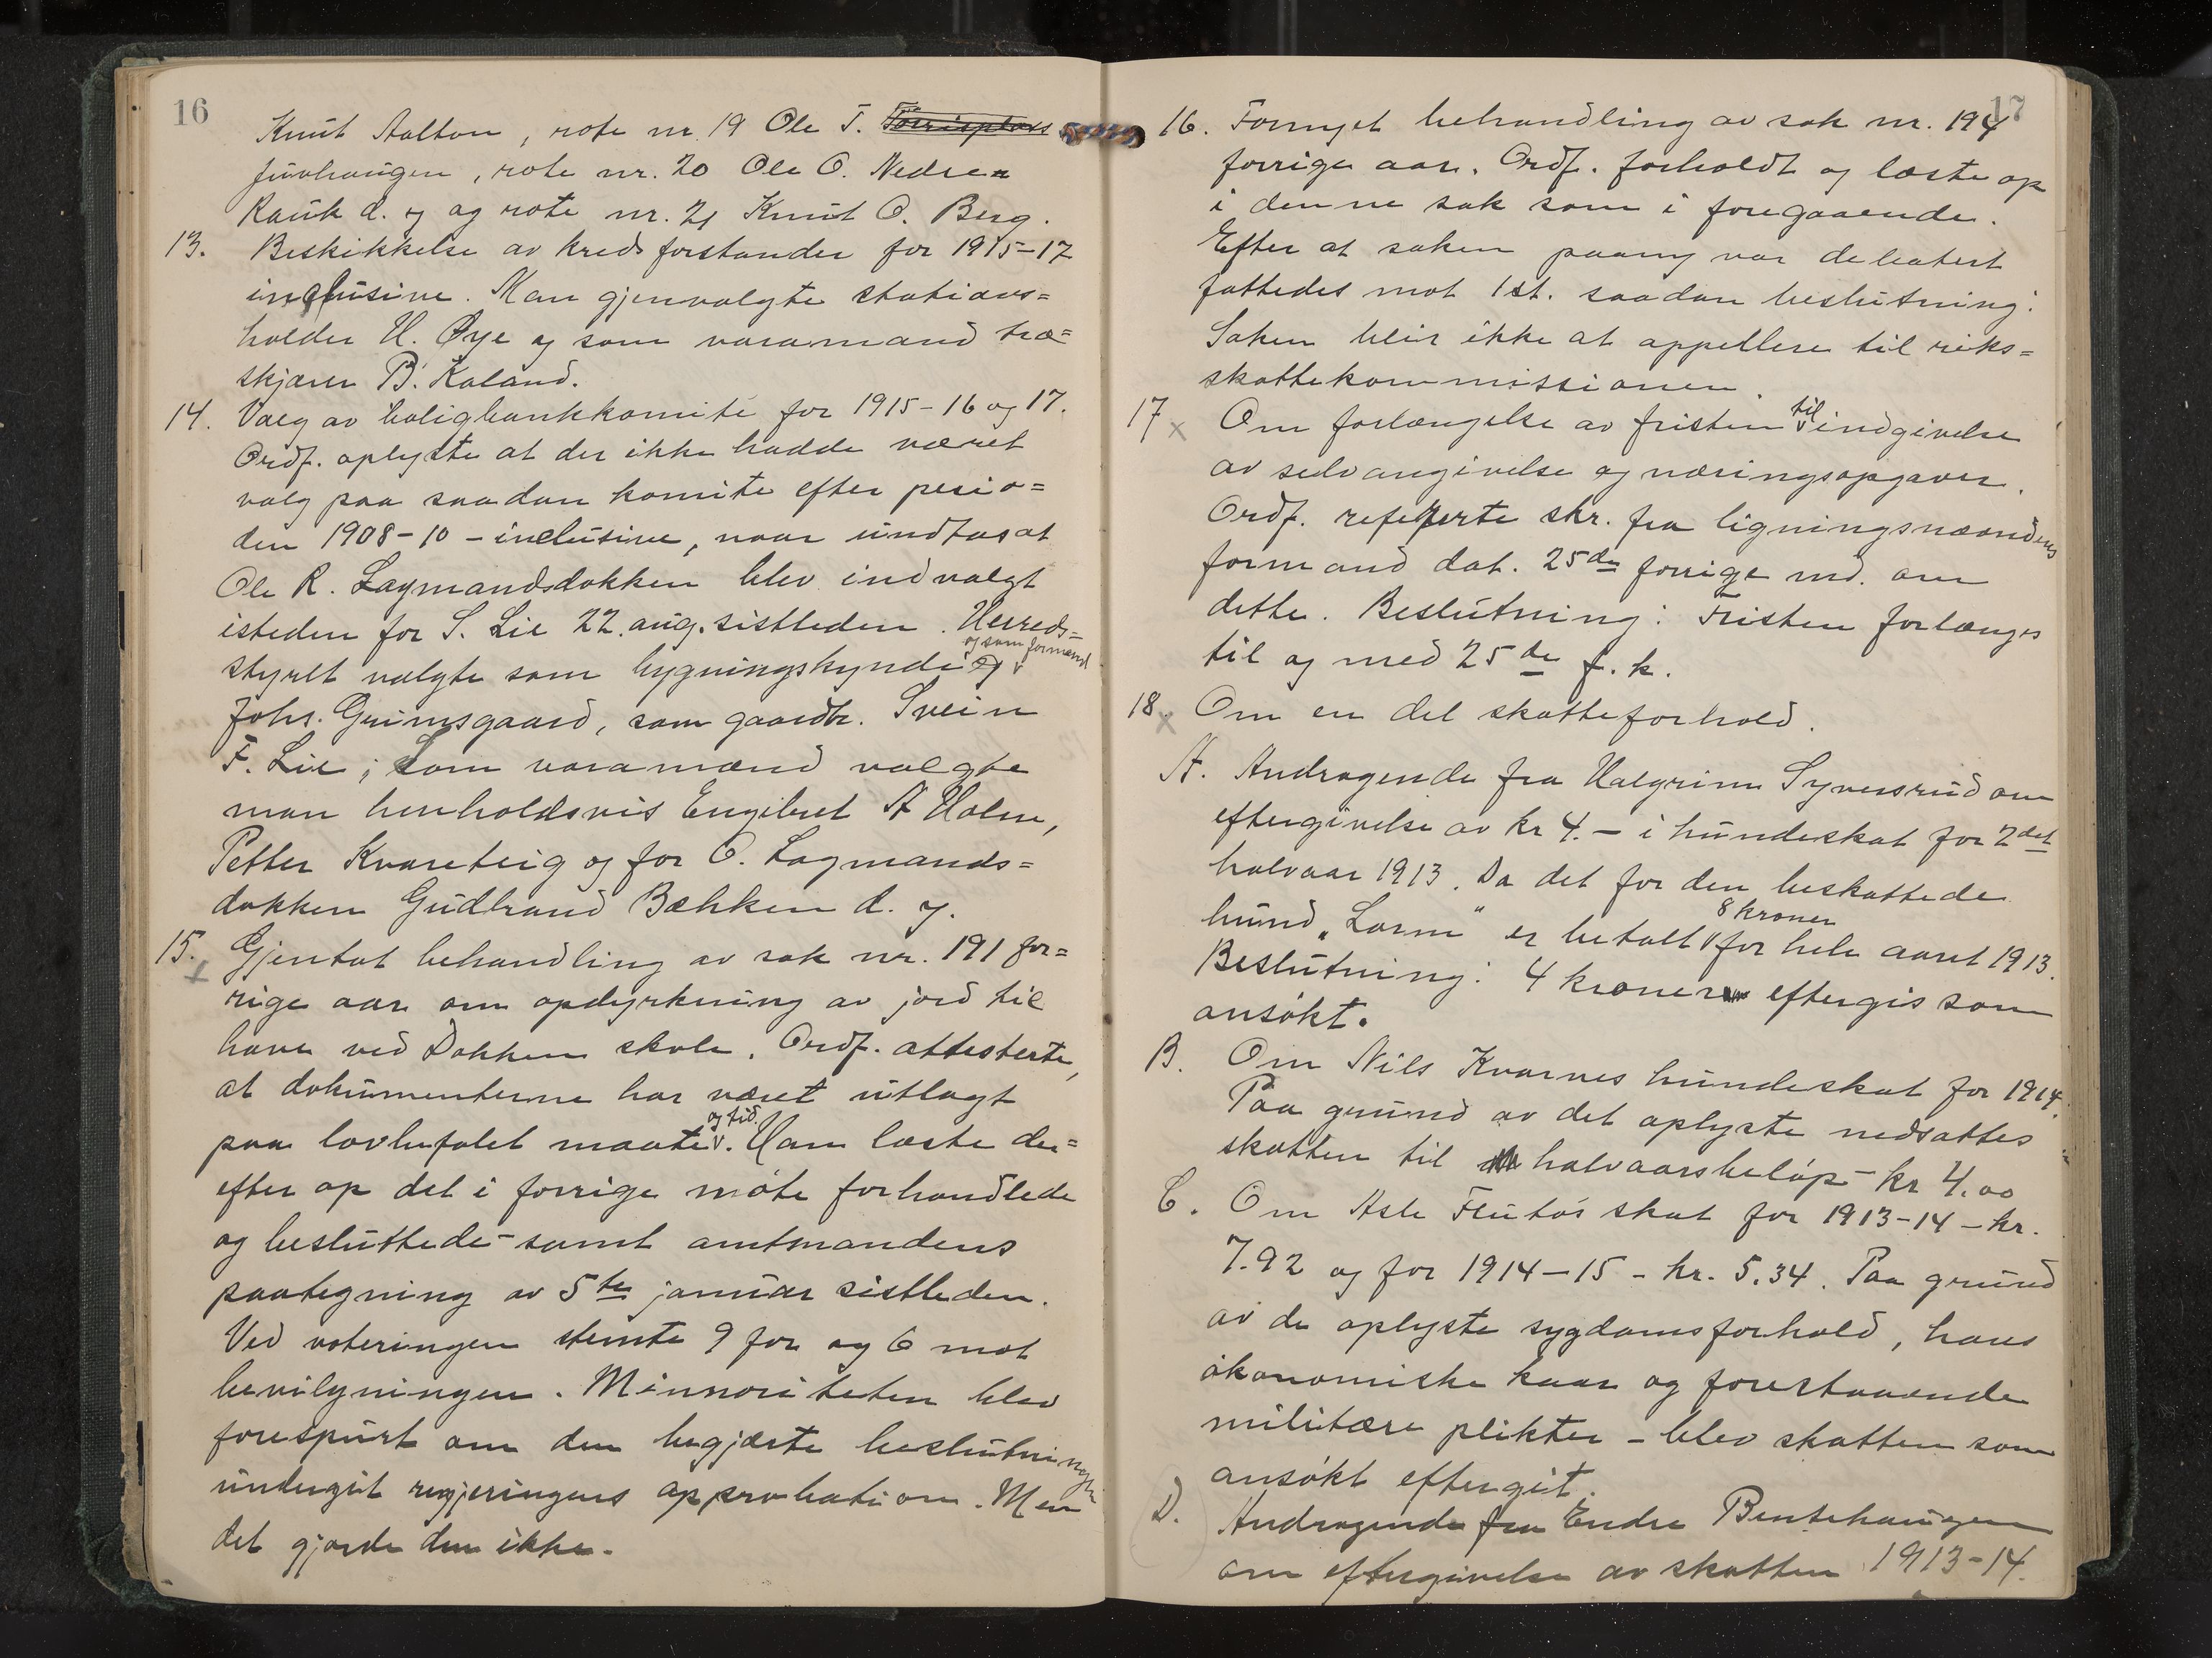 16
Knut Aalton, rote nr. 19 Ole T.
Juvhaugen, rote nr. 20 Ole O. Nedre
Rauk d. y og rote nr. 21 Knut O. Berg.
13. Beskikkelse av kredsforstander for 1915-17
inclusive. Man gjenvalgte stations=
holder H. Øye og som varamand træ=
skjærer B. Kaland.
14. Valg av boligbankkomite for 1915-16 og 17.
Ordf. oplyste at der ikke hadde været
valg paa saadan komite efter perio=
den 1908-10 - inclusive, naar undtas at
Ole R. Lagmandsdokken blev indvalgt
isteden for S. Lie 22. aug. sistleden. Herreds=
styret valgte som bygningskyndig og som formand
Johs. Grimsgaard, som gaardbr. Svein
F. Lie; som varamænd valgte
man henholdsvis Engebret A Holm,
Petter Kvareteig og for O. Lagmands=
dokken Gudbrand Bækken d. y.
15. Gjentat behandling av sak nr. 191 for=
rige aar om opdyrkning av jord til
have ved Dokken skole. Ordf. attesterte,
at dokumenterne har været utlagt
paa lovbefalet maate og tid. Han læste der=
efter op det i forrige møte forhandlede
og besluttede - samt amtmandens
paategning av 5te januar sistleden.
Ved voteringen stemte 9 for og 6 mot
bevilgningen. Minnoriteten blev
forespurt om den begjærte beslutningen
undergit regjeringens approbation. Men
det gjorde den ikke.
17
16. Fornyet behandling av sak nr. 194
forrige aar. Ordf. forholdt og læste op
i denne sak som i foregaaende.
Efter at saken paany var debatert
fattedes mot 1 st. saadan beslutning:
Saken blir ikke at appellere til riks=
skattekommissionen.
17 x Om forlængelse av fristen til indgivelse
av selvangivelse og næringsopgaver.
Ordf. refererte skr. fra ligningsnævndens
formand dat. 25de forrige md. om
dette. Beslutning: Fristen forlænges
til og med 25de f. k.
18. x Om en del skatteforhold.
A. Andragende fra Halgrim Syversrud om
eftergivelse av kr 4.- i hundeskat for 2det
halvaar 1913. Da det for den beskattede
hund „Lorm" er betalt 8 kroner for hele aaret 1913.
Beslutning: 4 kroner eftergis som
ansøkt.
B. Om Nils Kvarnes hundeskat for 1914.
Paa grund av det oplyste nedsattes
skatten til halvaarsbeløp - kr 4.00
C. Om Asle Flutøs skat for 1913-14 - kr.
7.92 og for 1914-15 - kr. 5.34. Paa grund
av de oplyste sygdomsforhold, hans
økonomiske kaar og forestaaende
militære plikter - blev skatten som
ansøkt eftergit.
D. Andragende fra Endre Bentehaugen
om eftergivelse av skatten 1913-14.